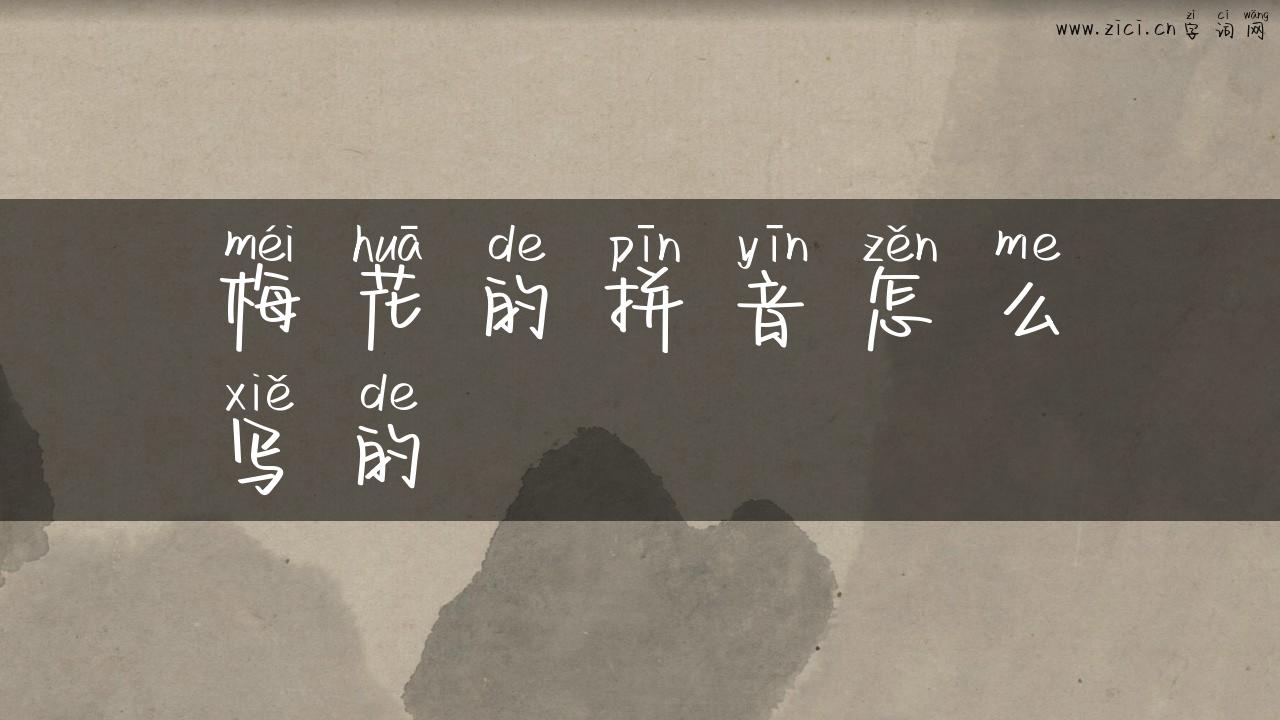 zì cí wǎng
www.zici.cn 字 词 网
méi huā de pīn yīn zěn me
梅 花 的 拼 音 怎 么
xiě de
写 的